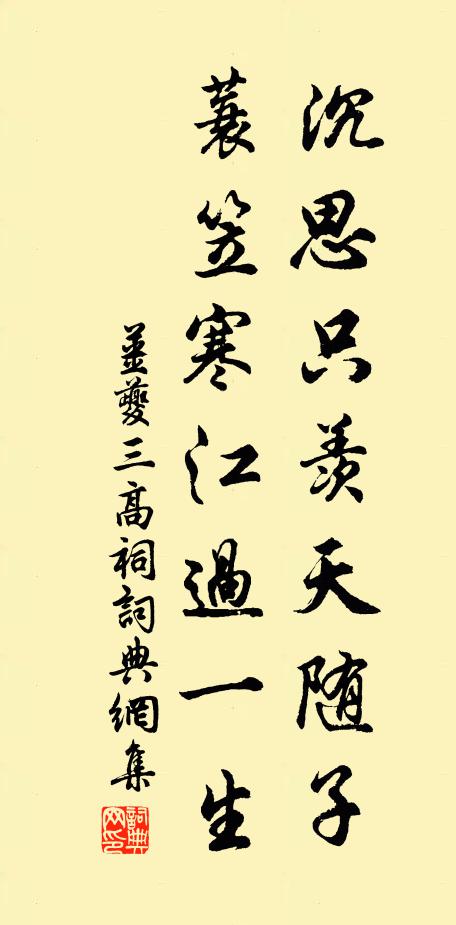 沉思只羨天随子
蓑笠寒江過一生
姜夔三高祠詞典網集
詞典网印